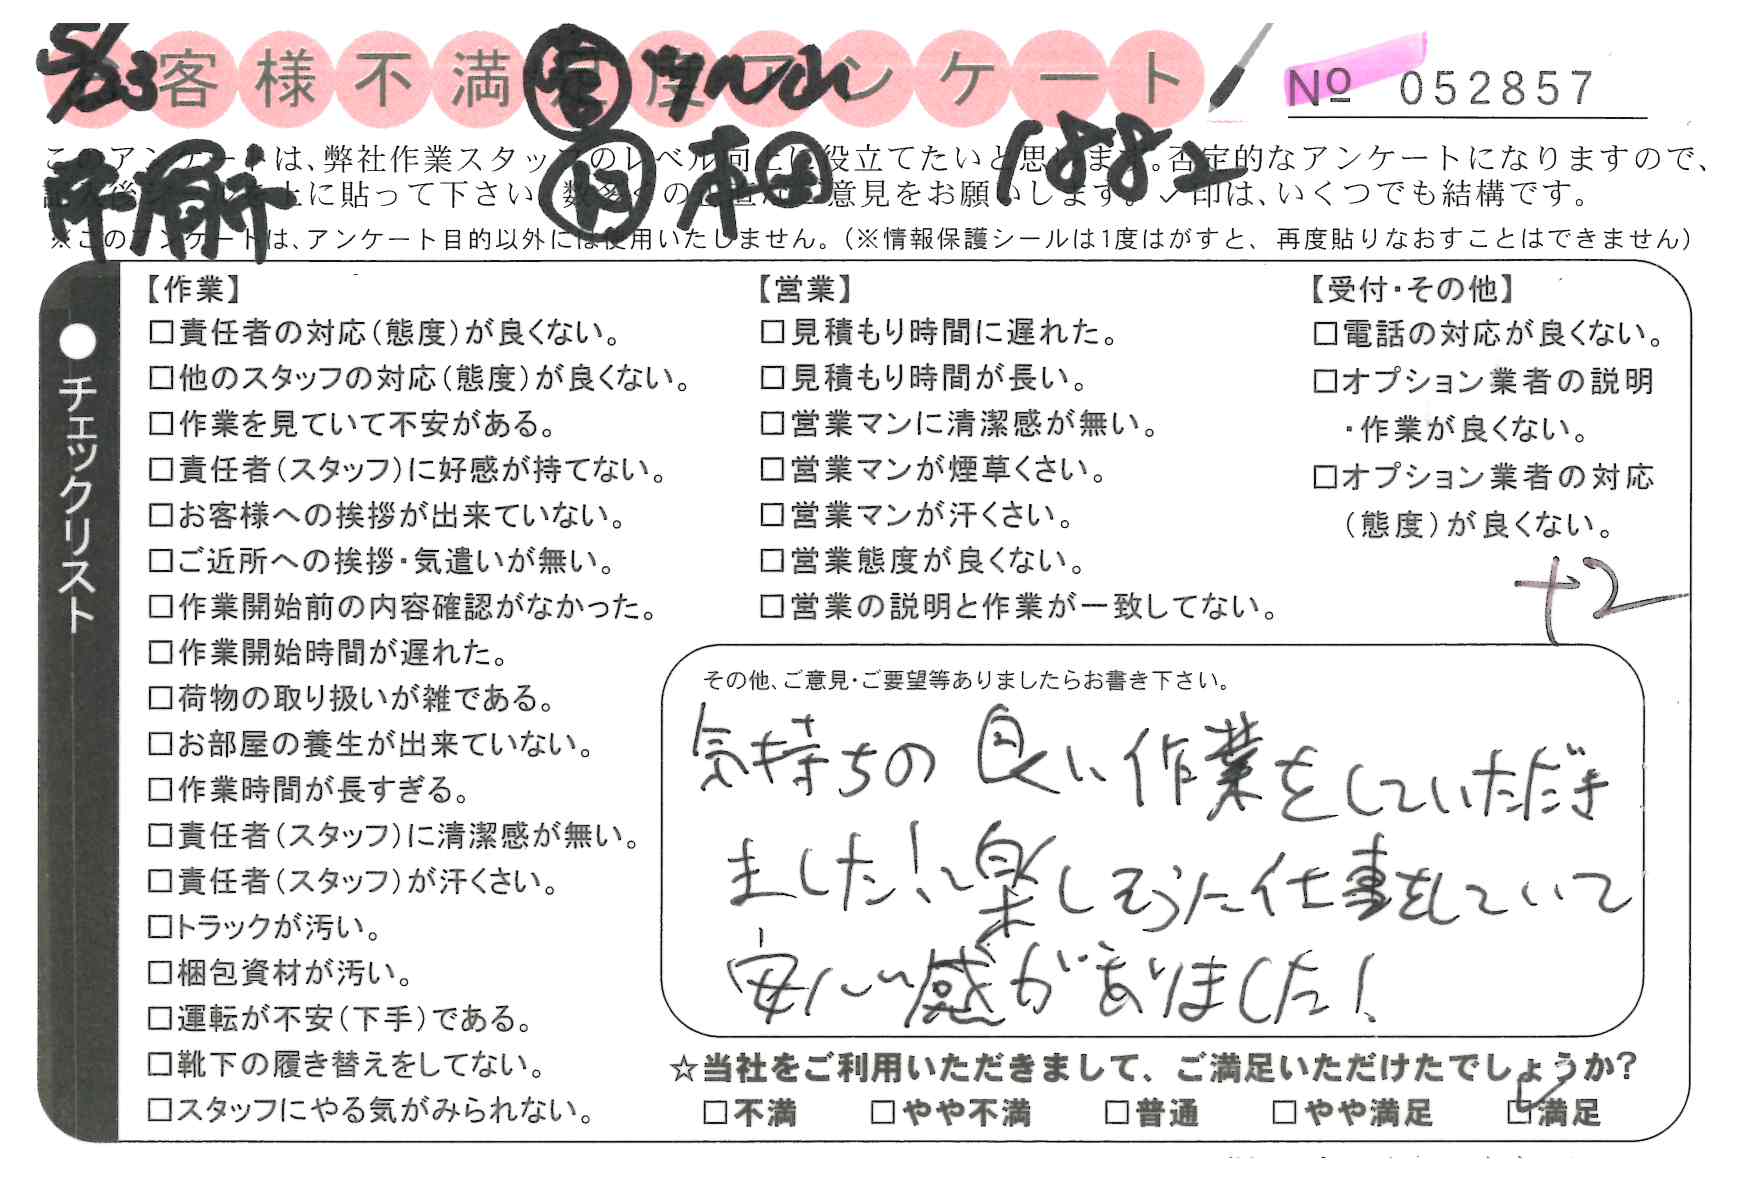 5/23
お客様不満足度アンケート
No 052857
このアンケートは、弊社作業スタッフのレベル向上に役立てたいと思います。否定的なアンケートになりますので、
に貼って下さい。数多くの ご意見をお願いします。✓印は、いくつでも結構です。
本田 1882
※このアンケートは、アンケート目的以外には使用いたしません。(※情報保護シールは1度はがすと、再度貼りなおすことはできません)
●チェックリスト
【作業】
□責任者の対応(態度)が良くない。
□他のスタッフの対応(態度)が良くない。
□作業を見ていて不安がある。
□責任者(スタッフ)に好感が持てない。
□お客様への挨拶が出来ていない。
□ご近所への挨拶・気遣いが無い。
□作業開始前の内容確認がなかった。
□作業開始時間が遅れた。
□荷物の取り扱いが雑である。
□お部屋の養生が出来ていない。
□作業時間が長すぎる。
□責任者(スタッフ)に清潔感が無い。
□責任者(スタッフ)が汗くさい。
□トラックが汚い。
□梱包資材が汚い。
□運転が不安(下手)である。
□靴下の履き替えをしてない。
□スタッフにやる気がみられない。
【営業】
□見積もり時間に遅れた。
□見積もり時間が長い。
□営業マンに清潔感が無い。
□営業マンが煙草くさい。
□営業マンが汗くさい。
□営業態度が良くない。
□営業の説明と作業が一致してない。
【受付・その他】
□電話の対応が良くない。
□オプション業者の説明
・作業が良くない。
□オプション業者の対応
(態度)が良くない。
+2
その他、ご意見・ご要望等ありましたらお書き下さい。
気持ちの良い作業をしていただき
ました!楽しそうに仕事をしていて
安心感がありました!
☆当社をご利用いただきまして、ご満足いただけたでしょうか?
□不満 □やや不満 □普通 □やや満足 ☑満足